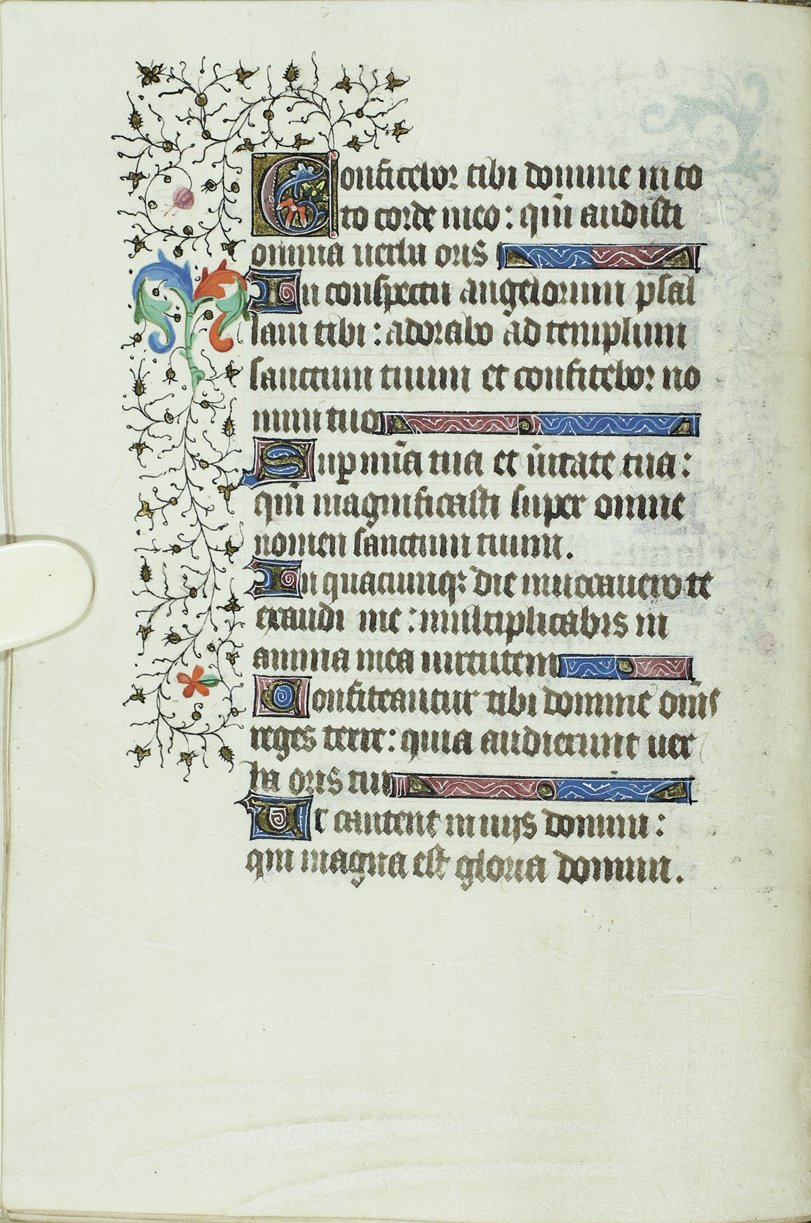 Confitebor tibi domine in to
to corde meo : qm̄ audisti
omnia uerba oris
In conspectu angelorum psal
lam tibi : adorabo ad templum
sanctum tuum et confitebor no
mini tuo
Sup mīa tua et ūitate tua :
qm̄ magnificasti super omne
nomen sanctum tuum .
In quacumqꝫ die inuocauero te
exaudi me : multiplicabis in
anima mea uirtutem
Confiteantur tibi domine om̄s
reges terre : quia audierunt uer
ba oris tui
Et cantent in uijs domini :
qm̄ magna est gloria domini .